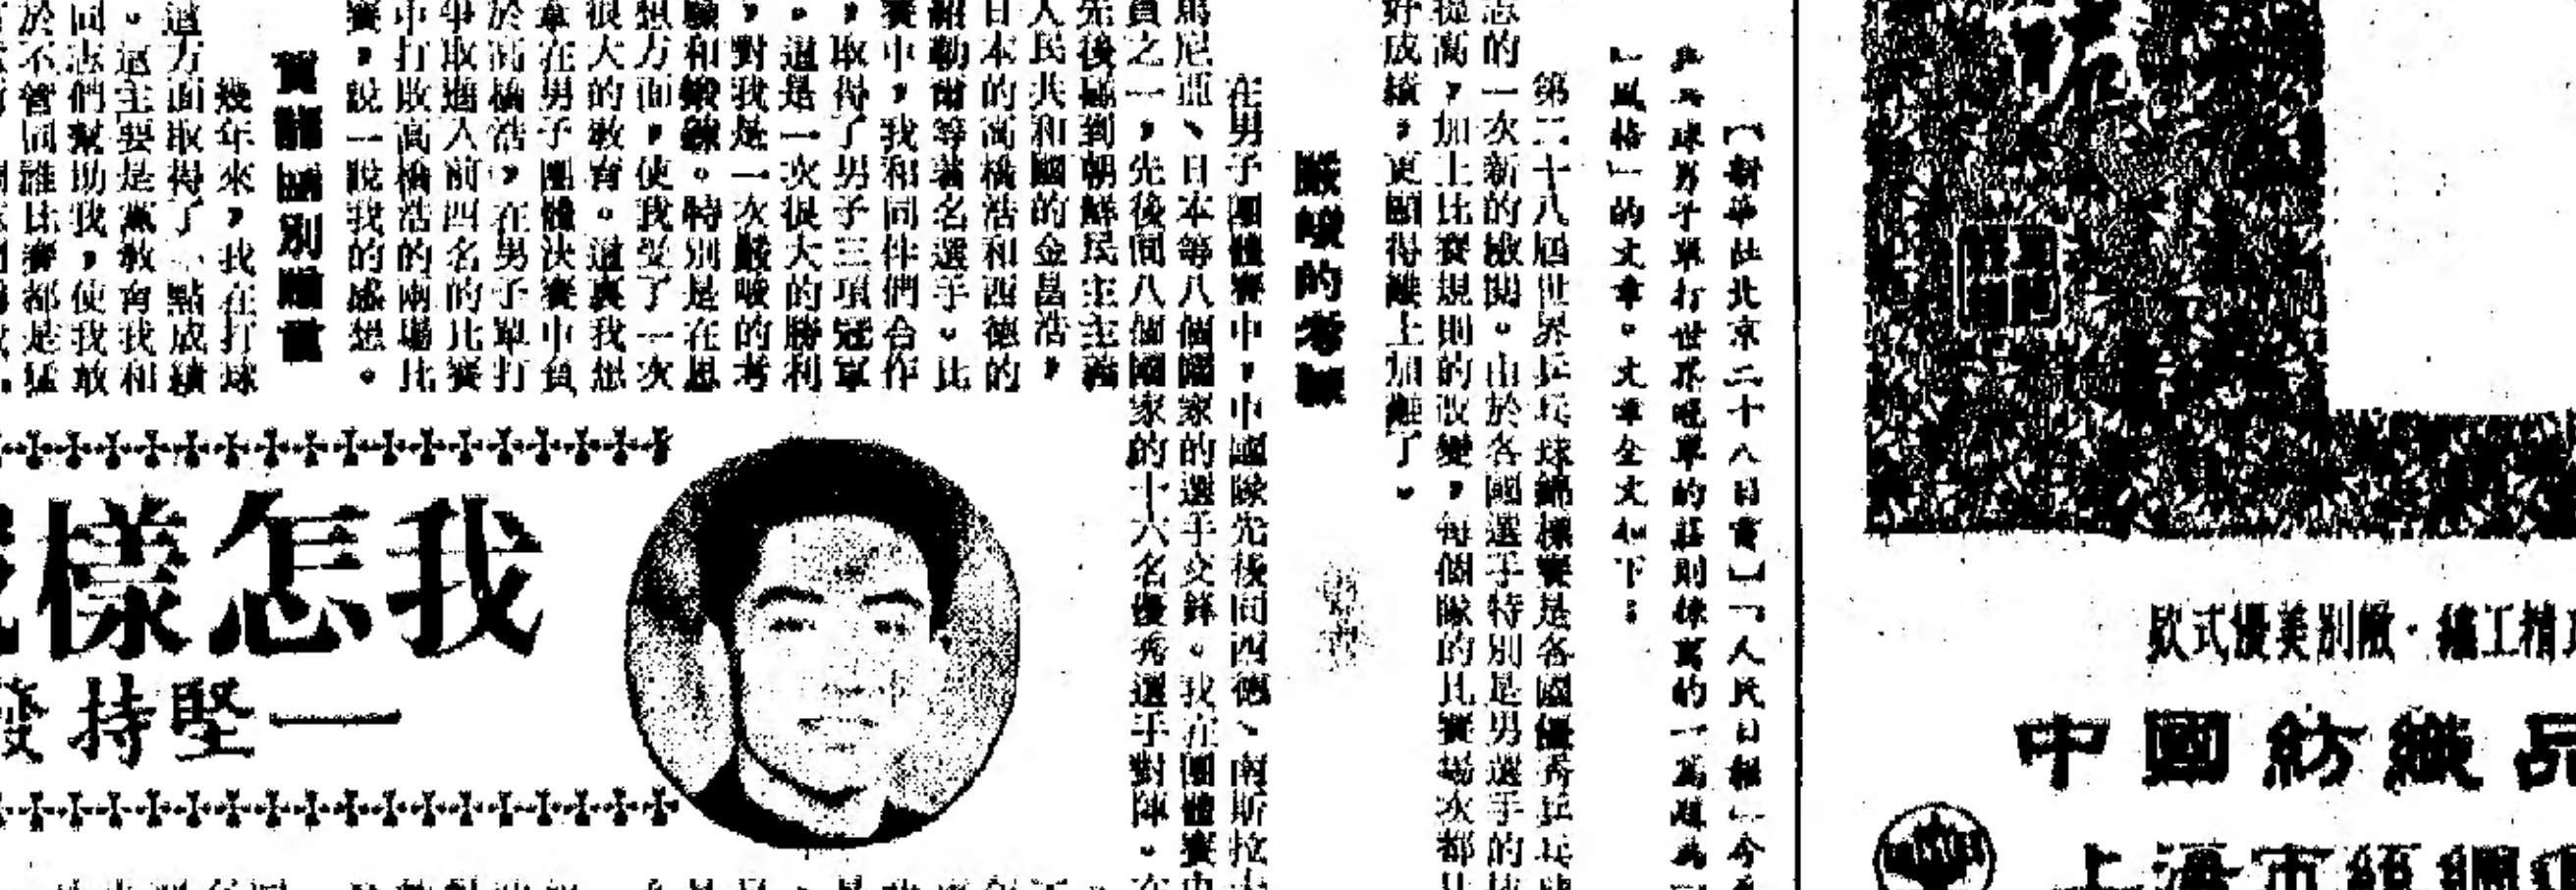 【新華社北京二十八日電】「人民日報」今
乓球男子單打世界冠軍的莊則棟寫的一篇題為
風格」的文章。文章全文如下：
第二十八屆世界乒乓球錦標賽是各國優秀乒乓球
志的一次新的檢閱。由於各國選手特別是男選手的技
提高，加上比賽規則的改變，每個隊的比賽場次都比
好成績，更顯得難上加難了。
嚴峻的考驗
在男子團體賽中，中國隊先後同西德、南斯拉夫
馬尼亞、日本等八個國家的選手交鋒。我在團體賽中
員之一，先後同八個國家的十六名優秀選手對陣。在
先後碰到朝鮮民主主義
人民共和國的金昌浩，
日本的高橋浩和西德的
紹勒爾等著名選手。比
賽中，我和同伴們合作
，取得了男子三項冠軍
。這是一次很大的勝利
，對我是一次嚴峻的考
驗和鍛鍊。特別是在思
想方面，使我受了一次
很大的教育。這裏我想
拿在男子團體決賽中負
於高橋浩，在男子單打
爭取進入前四名的比賽
中打敗高橋浩的兩場比
賽，說一說我的感想。
賀龍臨別贈言
幾年來，我在打球
這方面取得了一點成績
。這主要是黨教育我和
同志們幫助我，使我敢
於不管同誰比賽都是猛
我怎樣
一堅持發
款式優美別緻·織工精
中國紡織品
上海市絲綢